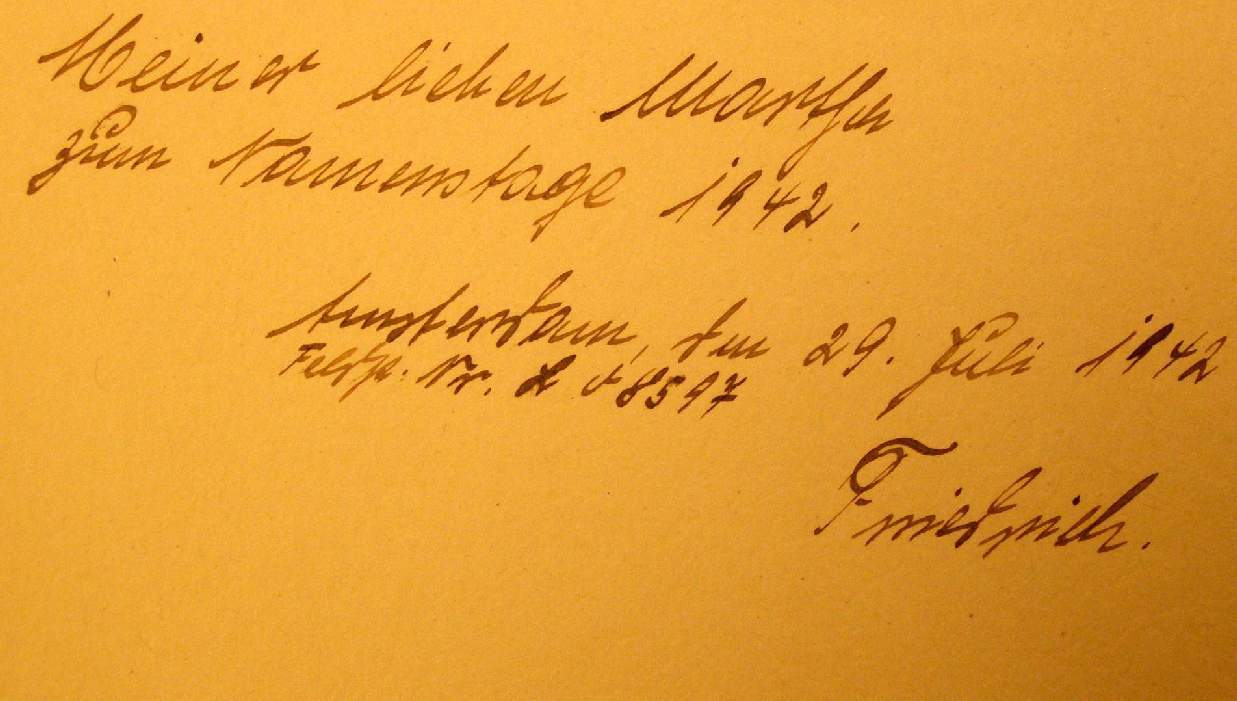 Meiner lieben Martha
zum Namenstage 1942.
Amsterdam, den 29. Juli 1942
Feldp. Nr. L
Friedrich.